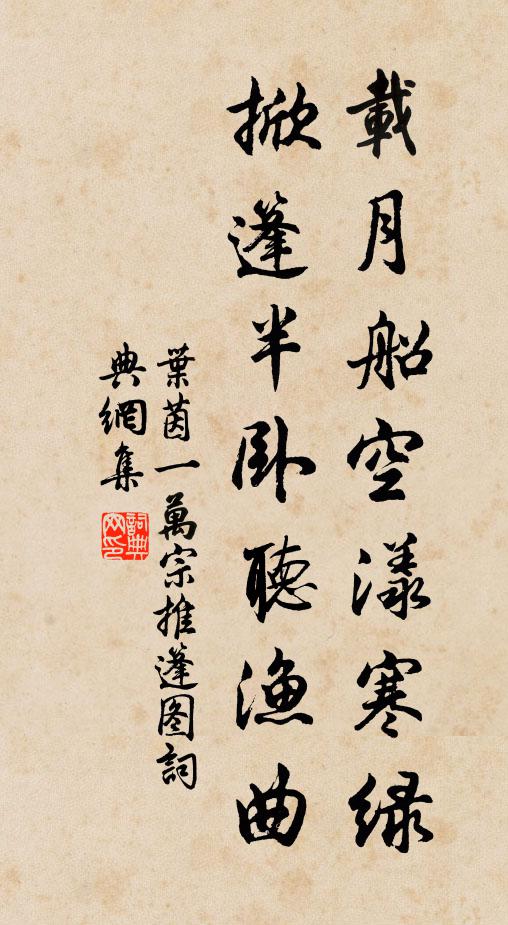 載月船空漾寒綠
掀蓬半卧聽漁曲
葉茵一萬宗推蓬图詞
典網集
詞典网印